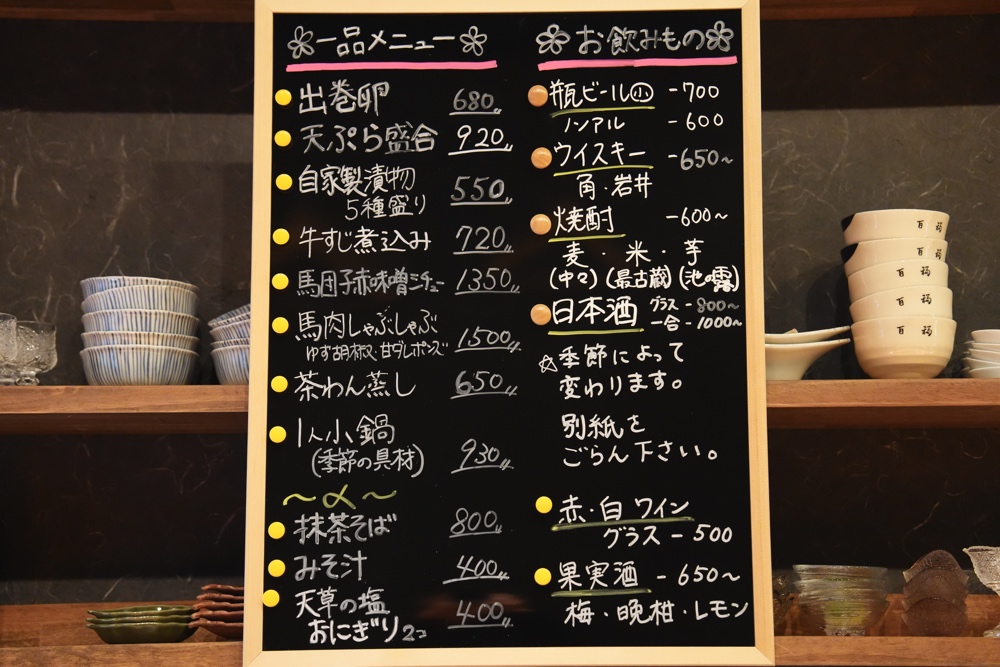 一品メニュー
出巻卵 680
天ぷら盛合 920
自家製漬物
5種盛り 550
牛すじ煮込み 720
馬団子赤味噌シチュー 1350
馬肉しゃぶしゃぶ
ゆず胡椒・甘ダレポンズ 1500
茶わん蒸し 650
1人小鍋
(季節の具材) 930
〜〆〜
抹茶そば 800
みそ汁 400
天草の塩
おにぎり2コ 400
お飲みもの
瓶ビール小 -700
ノンアル -600
ウイスキー -650〜
角・岩井
焼酎 -600〜
麦・米・芋
(中々)(最古蔵)(池の露)
日本酒 グラス-800〜
一合-1000〜
☆季節によって
変わります。
別紙を
ごらん下さい。
赤・白 ワイン
グラス-500
果実酒 -650〜
梅・晩柑・レモン
百福
百福
百福
百福
百福